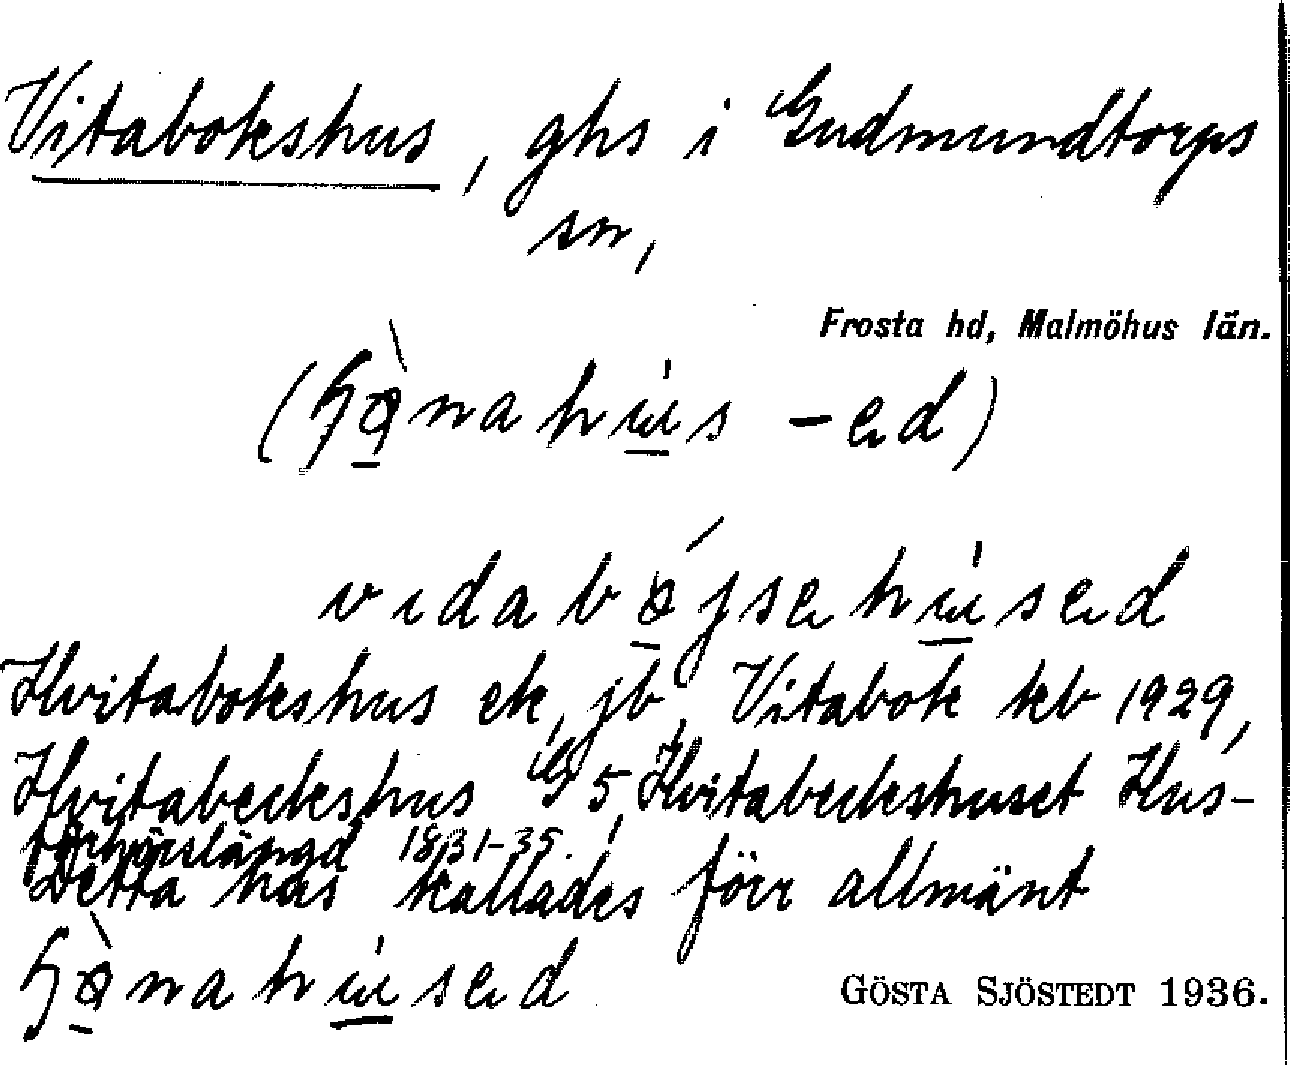 Vitabokshus, ghs i Gudmundtorps
sn,
Frosta hd, Malmöhus län.
vidabö́jsehúsed
Hvitabokshus ek, jb, Vitabok kb 1929,
Hvitabeckshus G 5, Hvitabeckshuset Hus-
förhörslängd 1831-35.
Detta hus kallades förr allmänt
GÖSTA SJÖSTEDT 1936.